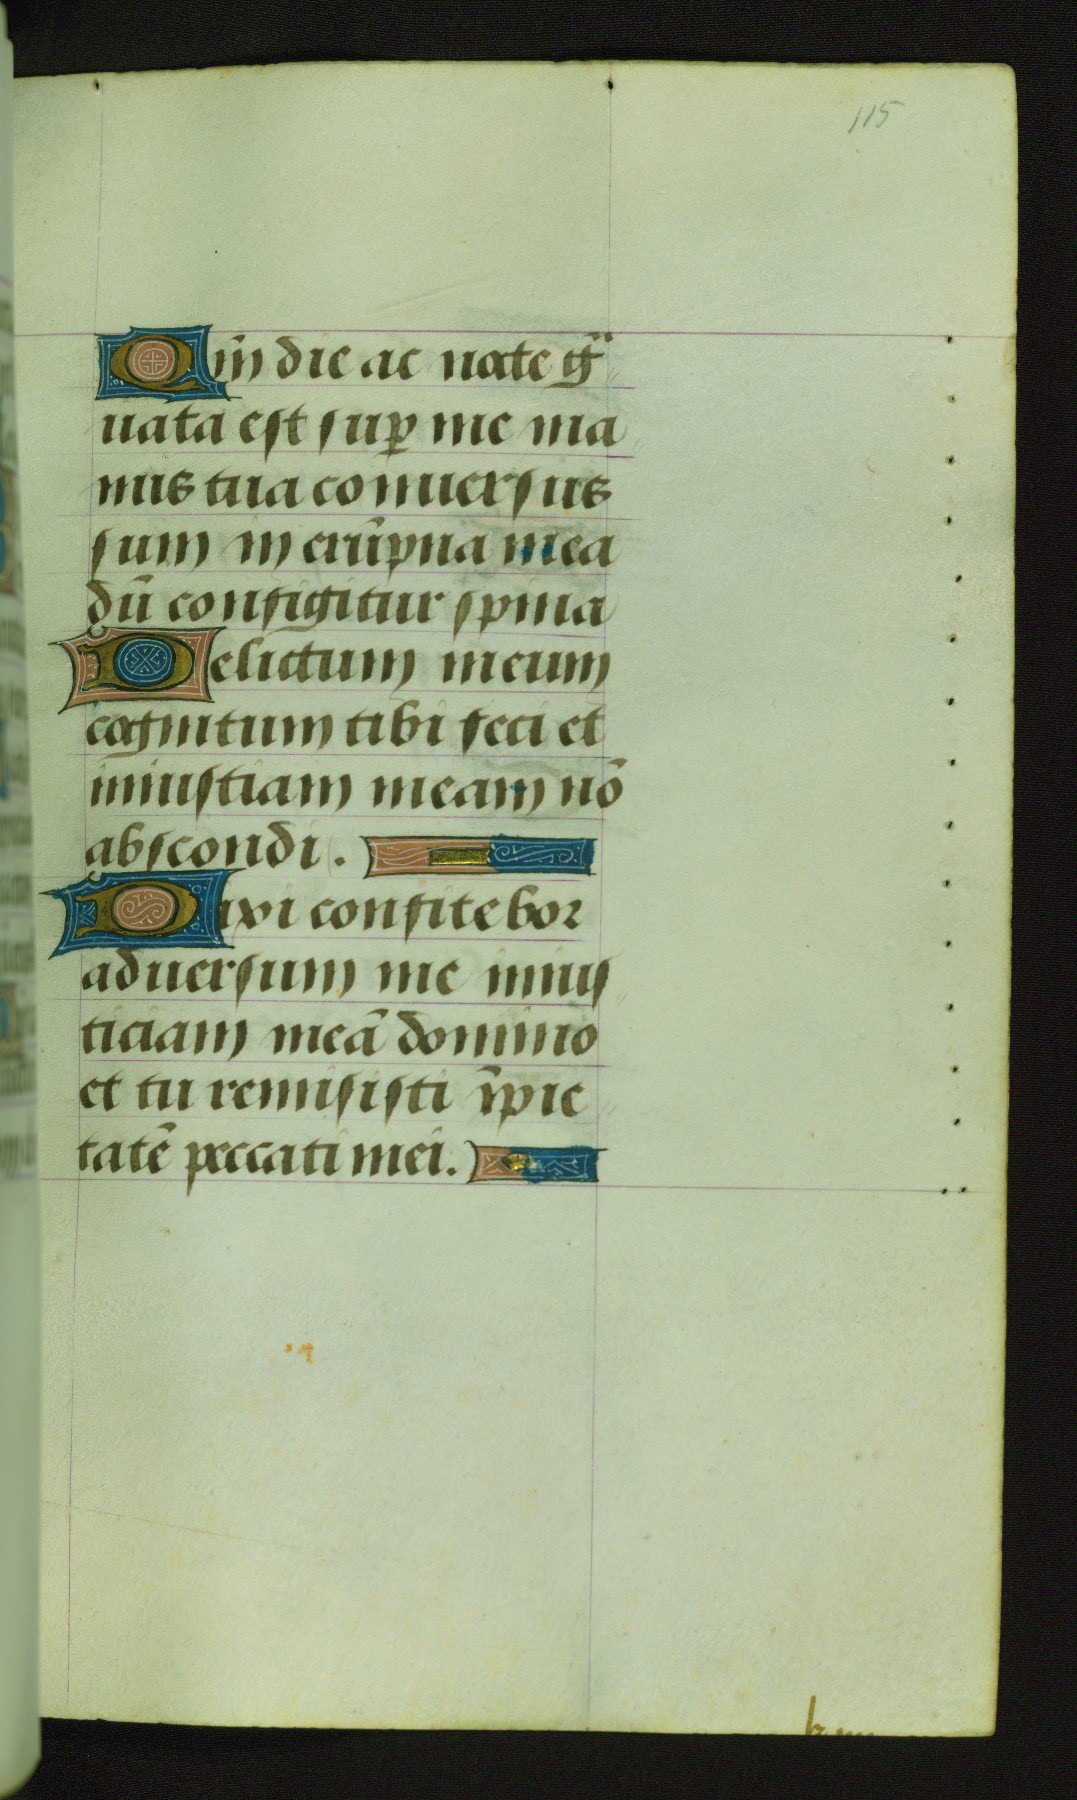 115
Qm̄ die ac nocte g̃
uata est sup̱ me ma
nus tua conuersus
sum in erūpna mea
dū configitur spina
Delictum meum
cognitum tibi feci et
iniustiam meam nō
abscondi.
Dixi confitebor
aduersum me inius
ticiam meā domino
et tu remisisti īpie
tatē peccati mei.